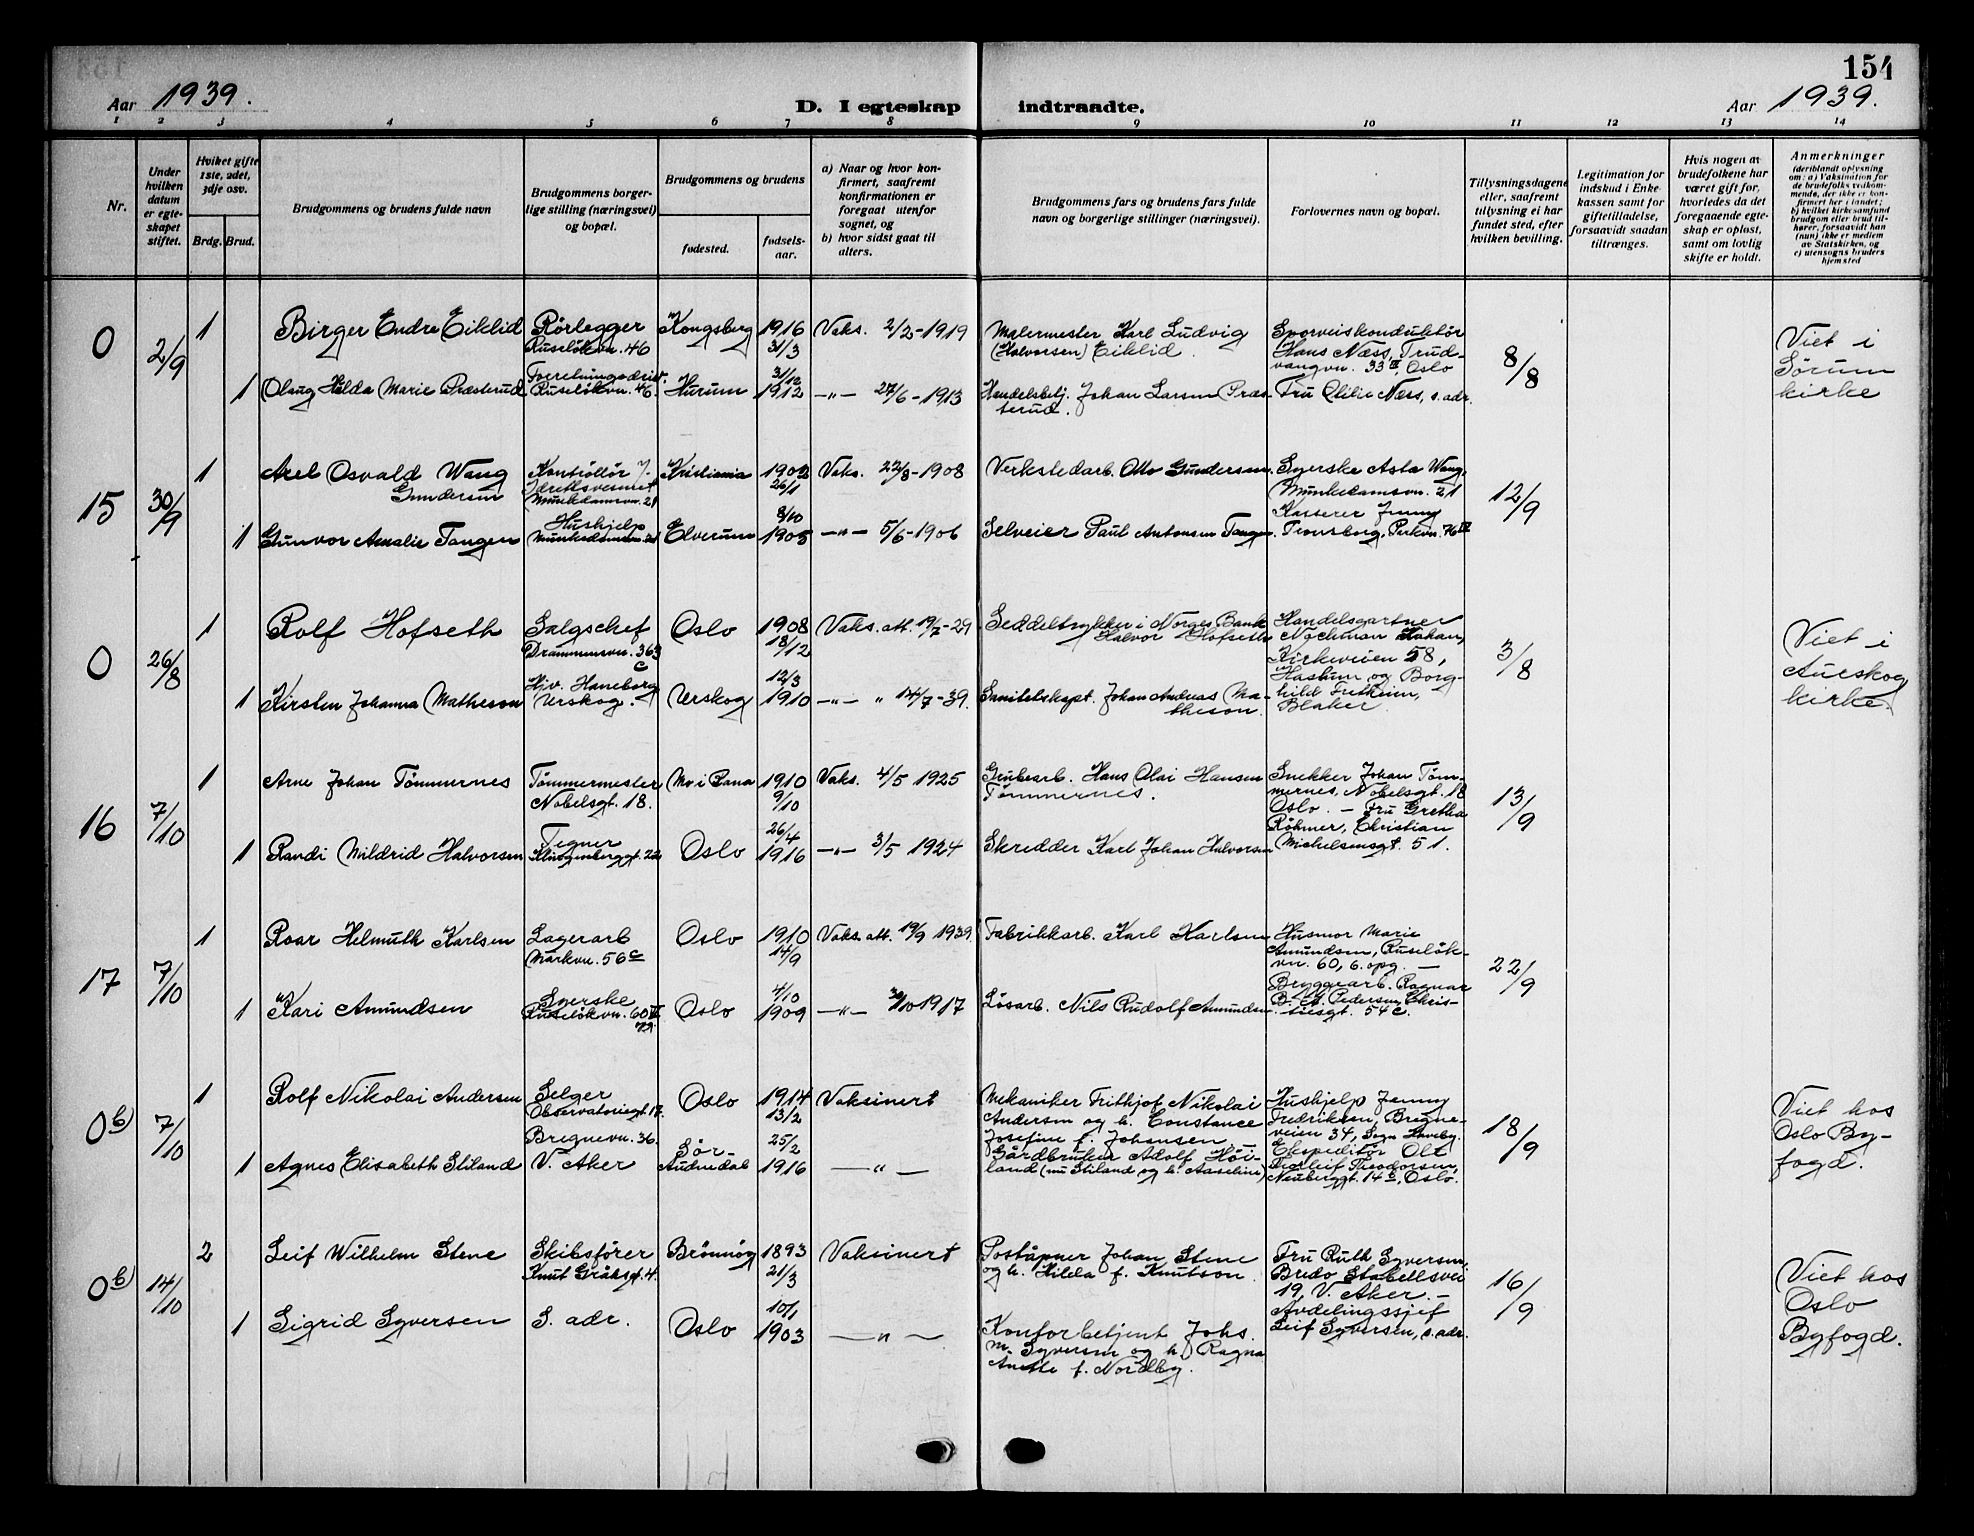 154
Aar 1939.
D. I egteskap indtraadte.
Aar 1939.
1 2 3 4 5 6 7 8 9 10 11 12 13 14
Nr.
Under hvilken datum er egteskapet stiftet.
Hvilket gifte 1ste, 2det, 3dje osv.
Brdg. Brud.
Brudgommens og brudens fulde navn
Brudgommens borgerlige stilling (næringsvei) og bopæl.
Brudgommens og brudens
fødested.
fødselsaar.
a) Naar og hvor konfirmert, saafremt konfirmationen er foregaat utenfor sognet, og
b) hvor sidst gaat til alters.
Brudgommens fars og brudens fars fulde navn og borgerlige stillinger (næringsvei).
Forlovernes navn og bopæl.
Tillysningsdagene eller, saafremt tillysning ei har fundet sted, efter hvilken bevilling.
Legitimation for indskud i Enkekassen samt for giftetilladelse, forsaavidt saadan tiltrænges.
Hvis nogen av brudefolkene har været gift før, hvorledes da det foregaaende egteskap er opløst, samt om lovlig skifte er holdt.
Anmerkninger (deriblandt oplysning om: a) Vaksination for de brudefolks vedkommende, der ikke er konfirmert her i landet; b) hvilket kirkesamfund brudgom eller brud tilhører, forsaavidt han (hun) ikke er medlem av Statskirken, og c) utensogns bruders hjemsted
0 2/9
1 Birger Endre Eiklid Rørlegger Ruseløkvn. 46 Kongsberg 1916 31/3 Vaks. 2/2-1919 Malermester Karl Ludvig (Halvorsen) Eiklid.
1 Olaug Hilda Marie Præsterud Ruseløkvn. 46. Hurum 31/12 1912 —"— 27/6-1913 Handelsbetj. Johan Larsen Præsterud.
Sporveiskonduktør Hans Næss, Trudvangvn. 33 II, Oslo
Fru Otilie Næss, s. adr.
8/8
Viet i Sørum kirke
15 30/9
1 Axel Osvald Wang Gundersen Kontrollør Munkedamsvn. 21 Kristiania 1902 26/1 Vaks. 22/8-1908 Verkstedarb. Otto Gundersen.
1 Gunvor Amalie Tangen Hushjelp Munkedamsvn. 21 Elverum 8/10 1905 —"— 5/6-1906 Selveier Paul Antonsen Tangen.
Syerske Asta Wang, Munkedamsvn. 21
Kasserer Jenny Tronsborg, Parkvn. 76 IV
12/9
0 26/8
1 Rolf Hofseth Salgschef Drammensvn. 363 c Oslo 1908 18/12 Vaks. att. 19/7-29 Seddeltrykker i Norges Bank Halvor Hofseth
1 Kirsten Johanna Matheson Hjv. Haneborg Urskog. Urskog 12/3 1910 —"— " 14/7-39. Sanitetskapt. Johan Andreas Matheson.
Handelsgartner Nachman Kahan, Kirkeveien 58, Haslum og Borghild Fretheim, Blaker.
3/8
Viet i Aurskog kirke.
16 7/10
1 Arne Johan Tømmernes Tømmermester Nobelsgt. 18. Mo i Rana 1910 9/10 Vaks. 4/5 1925 Grubearb. Hans Olai Hansen Tømmernes.
1 Randi Mildrid Halvorsen Tegner Klingenberggt. 22 Oslo 26/4 1916 —"— 3/5 1924 Skredder Karl Johan Halvorsen
Snekker Johan Tømmernes, Nobelsgt. 18 Oslo. — Fru Gretha Røhmer, Christian Michelsensgt. 51.
13/9
17 7/10
1 Roar Helmuth Karlsen Lagerarb Markvn. 56 c Oslo 1910 14/9 Vaks. att. 19/9 1939. Fabrikkarb. Karl Karlsen
1 Kari Amundsen Syerske Ruseløkvn. 60 Oslo 4/10 1909 —"— 1917 Løsarb. Nils Rudolf Amundsen.
Husmor Marie Amundsen, Ruseløkvn. 60, 6. opg. —
Bryggearb. Ragnar B. A. Pedersen, Christiesgt. 54 c.
22/9
0 b) 7/10
1 Rolf Nikolai Andersen Selger Observatoriegt. 17. Oslo 1914 13/2 Vaksinert Mekaniker Frithjof Nikolai Andersen og h. Constance Josefine f. Johansen.
1 Agnes Elisabeth Stiland Bregnevn. 36. V. Aker Sør-Audnedal 25/2 1916 —"— Gårdbruker Adolf Høiland (nu Stiland og h. Aaseline)
Hushjelp Jenny Fredriksen, Bregneveien 34, Sogn Haveby.
Ekspeditør Theodorsen, Neuberggt. 14 b, Oslo.
18/9
Viet hos Oslo Byfogd.
0 b) 14/10
2 Leif Wilhelm Stene Skibsfører Knut Gråhsgt. 4. Brønnøy 1893 21/3 Vaksinert Poståpner Johan Stene og h. Hilda f. Knutson.
1 Sigrid Syversen S. adr. Oslo 10/1 1903 —"— Kontorbetjent Johs. M. Syversen og h. Ragna Anette f. Nordby.
Fru Ruth Syversen, Bredo Stabellsvei 19, V. Aker. —
Avdelingssjef Leif Syversen, s. adr.
16/9
Viet hos Oslo Byfogd.